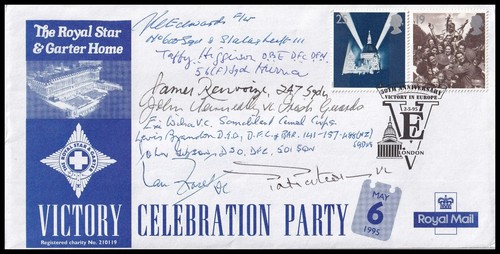 The Royal Star
& Garter Home
THE ROYAL STAR & GARTER
VICTORY CELEBRATION PARTY
Registered charity No. 210119
MAY
6
1995
Royal Mail
25
19
50TH ANNIVERSARY
VICTORY IN EUROPE
2.5.95
VE
LONDON
Edwards F/Lt
No 600 Sqn &
Taffy Higginson O.B.E DFC DFM
56(F) Sqd
James 247 Sqdn
John Kenneally VC Irish Guards
Eric Wilson V.C. Somaliland Camel Corps
Lewis Brandon D.S.O, D.F.C & BAR. 141-157-488(NZ)
SQDNS
John D.S.O, DFC, 501 SQN
DFC
VC